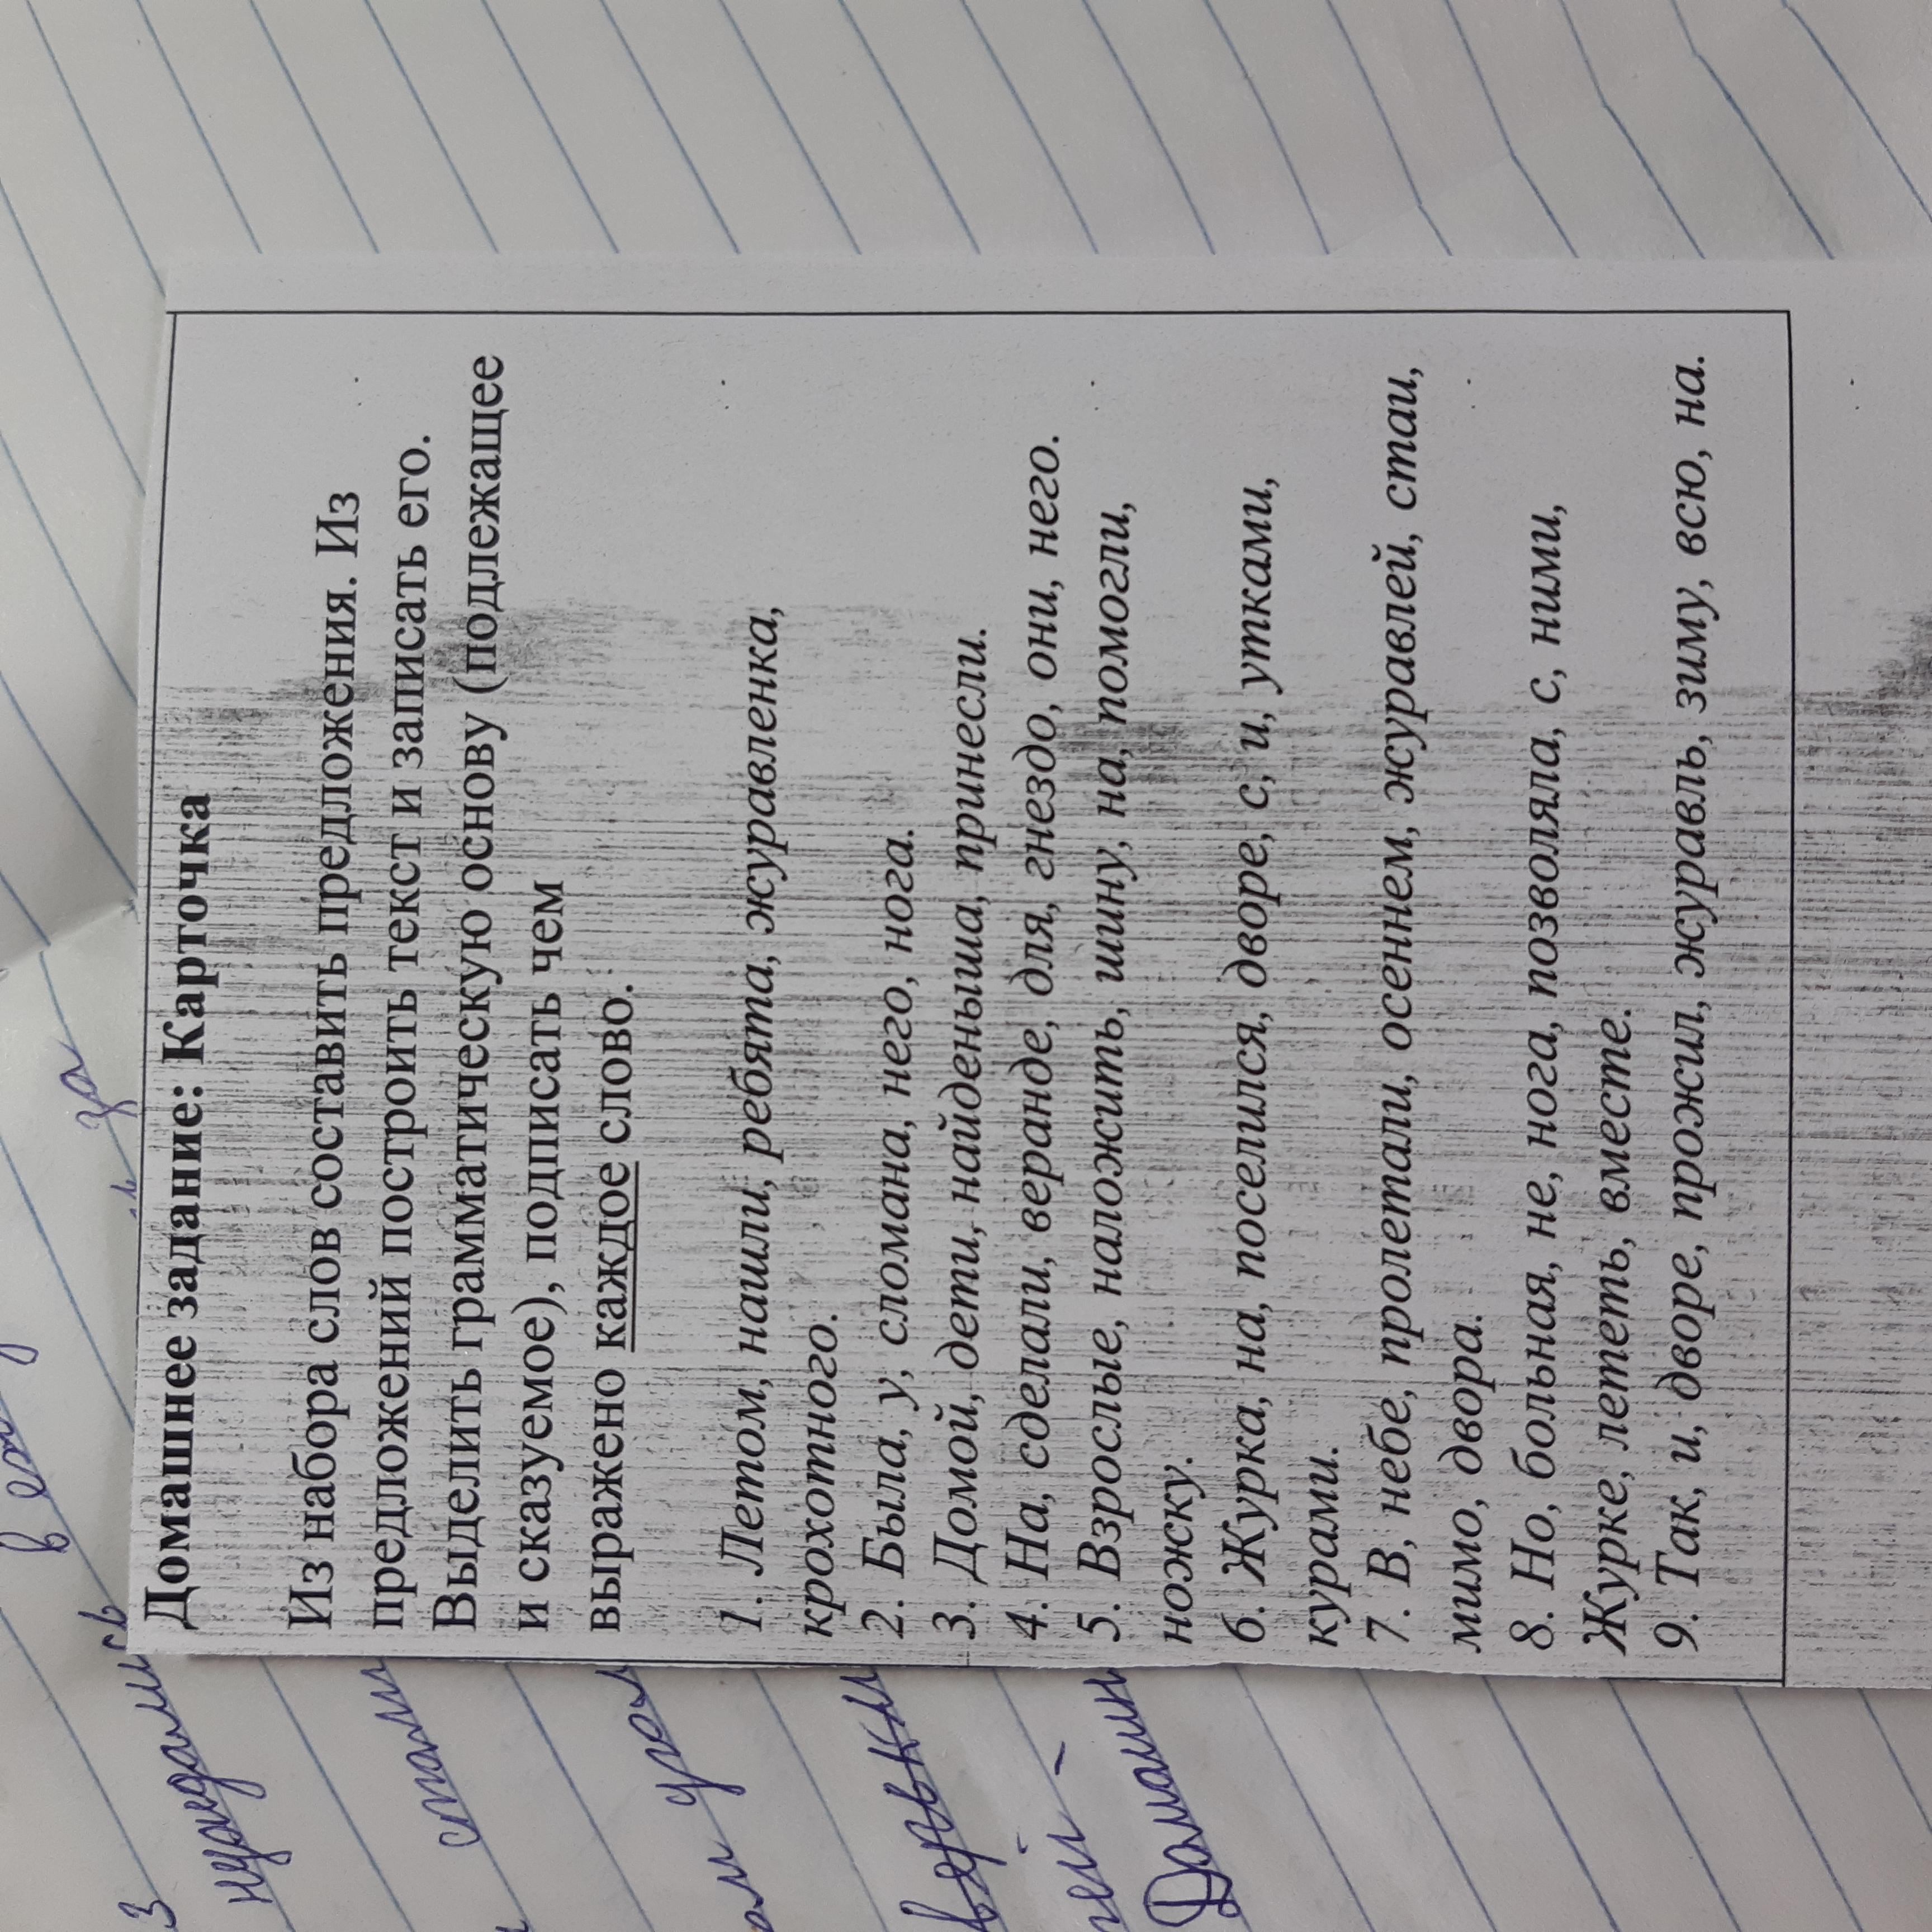 Домашнее задание: Карточка
Из набора слов составить предложения. Из
предложений построить текст и записать его.
Выделить грамматическую основу (подлежащее
и сказуемое), подписать чем
выражено каждое слово.
1. Летом, нашли, ребята, журавленка,
крохотного.
2. Была, у, сломана, него, нога.
3. Домой, дети, найденыша, принесли.
4. На, сделали, веранде, для, гнездо, они, него.
5. Взрослые, наложить, шину, на, помогли,
ножку.
6. Журка, на, поселился, дворе, с, и, утками,
курами.
7. В, небе, пролетали, осеннем, журавлей, стаи,
мимо, двора.
8. Но, больная, не, нога, позволяла, с, ними,
Журке, лететь, вместе.
9. Так, и, дворе, прожил, журавль, зиму, всю, на.
за
в